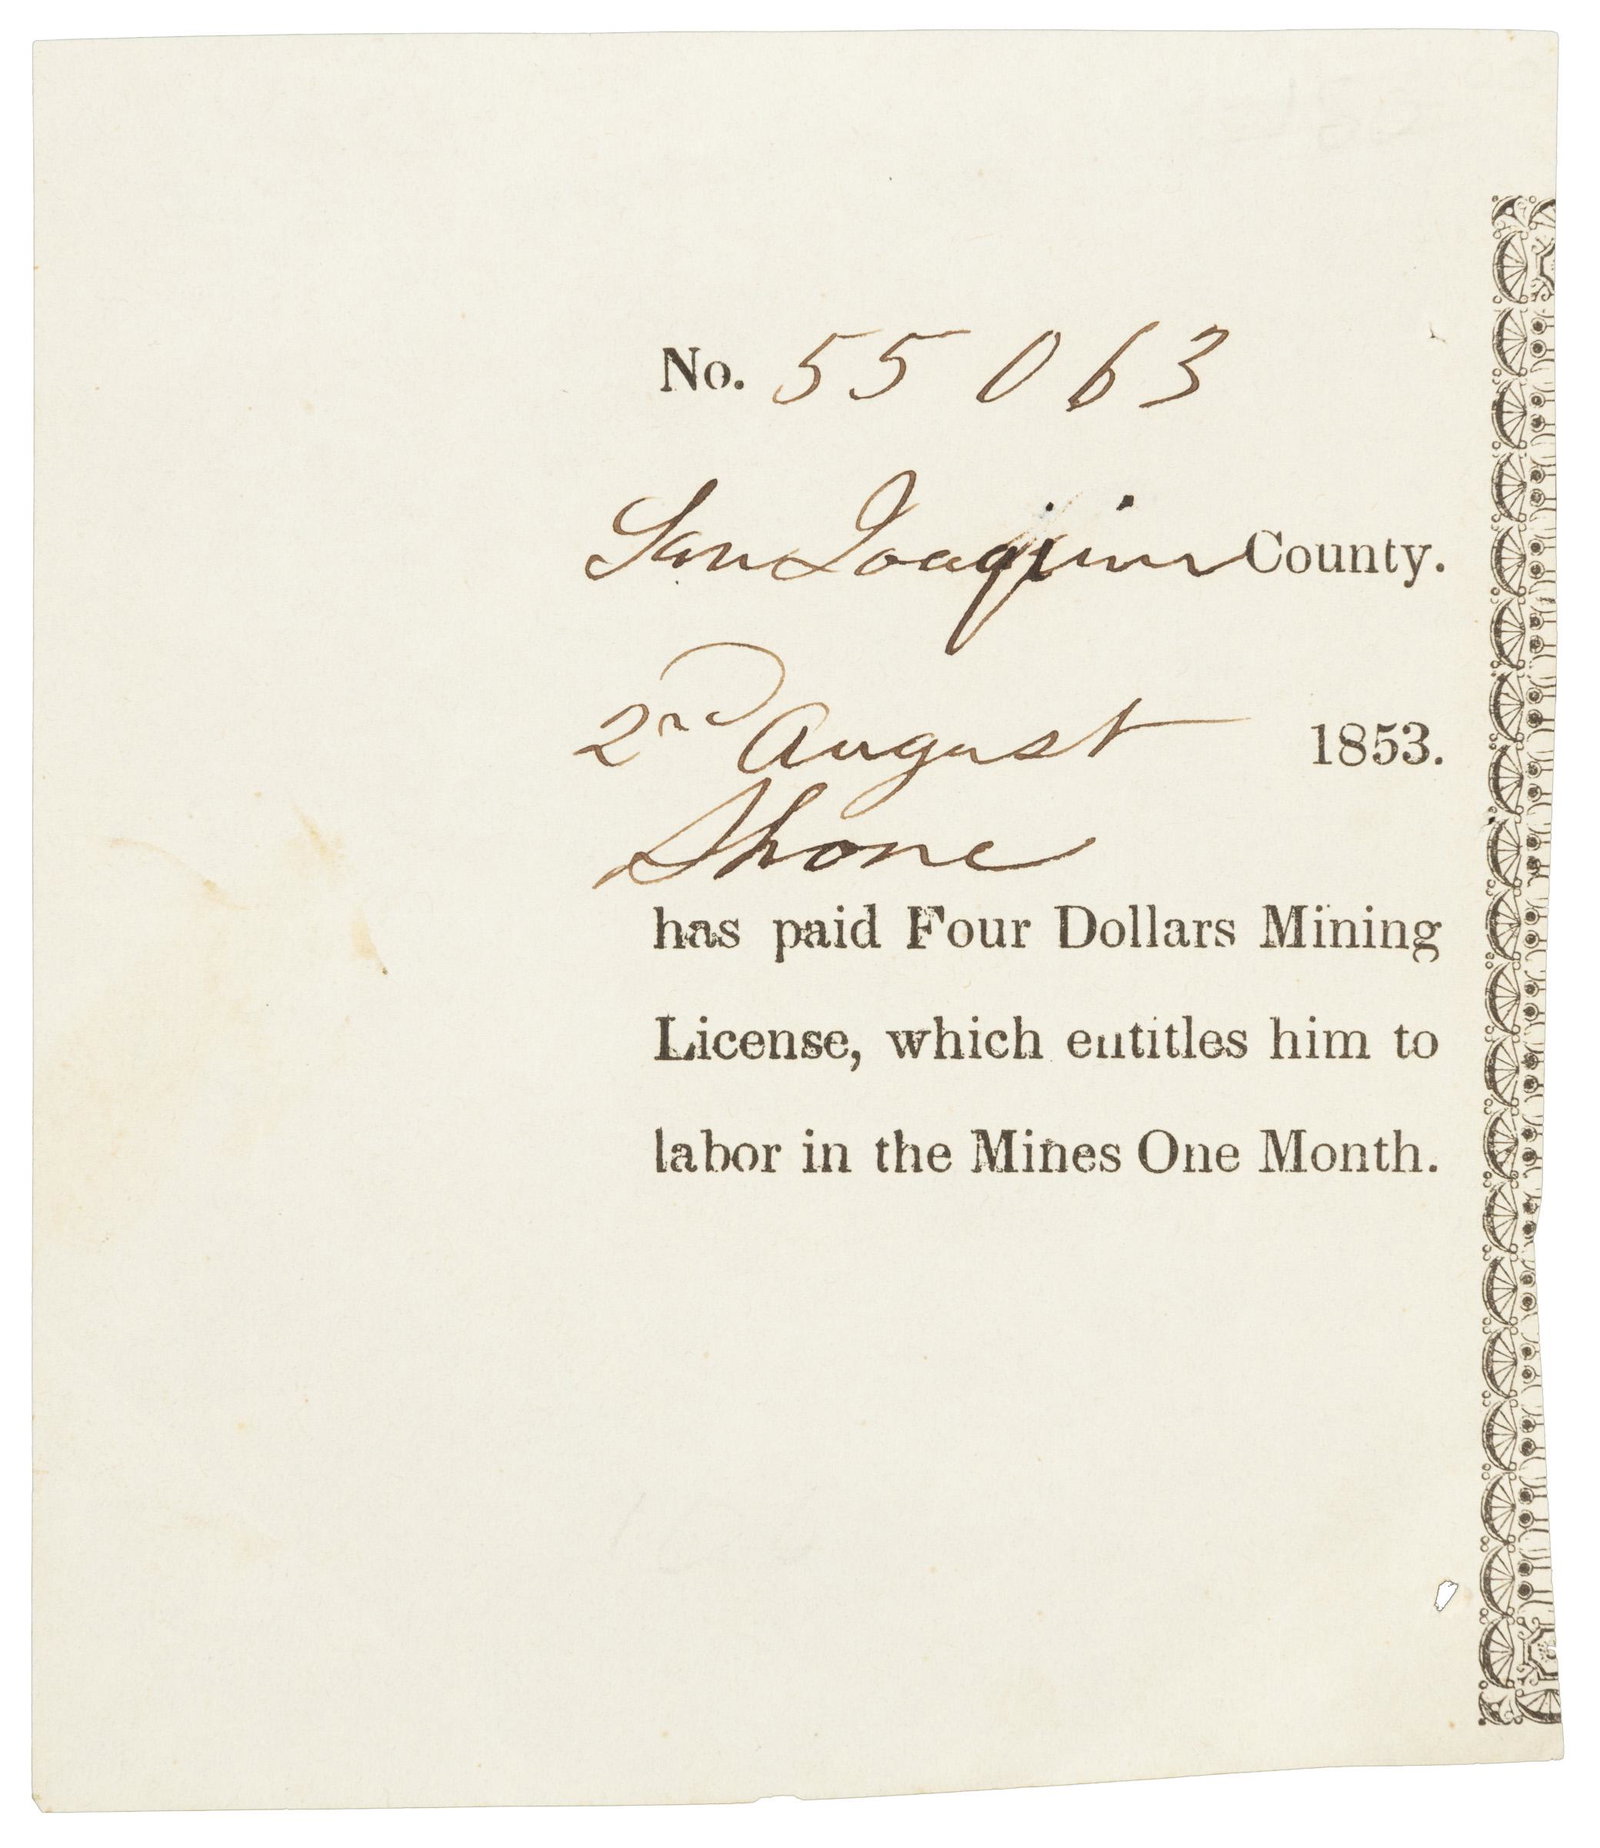 No. 55 063
San Joaquin County.
2nd August 1853.
Shone
has paid Four Dollars Mining
License, which entitles him to
labor in the Mines One Month.